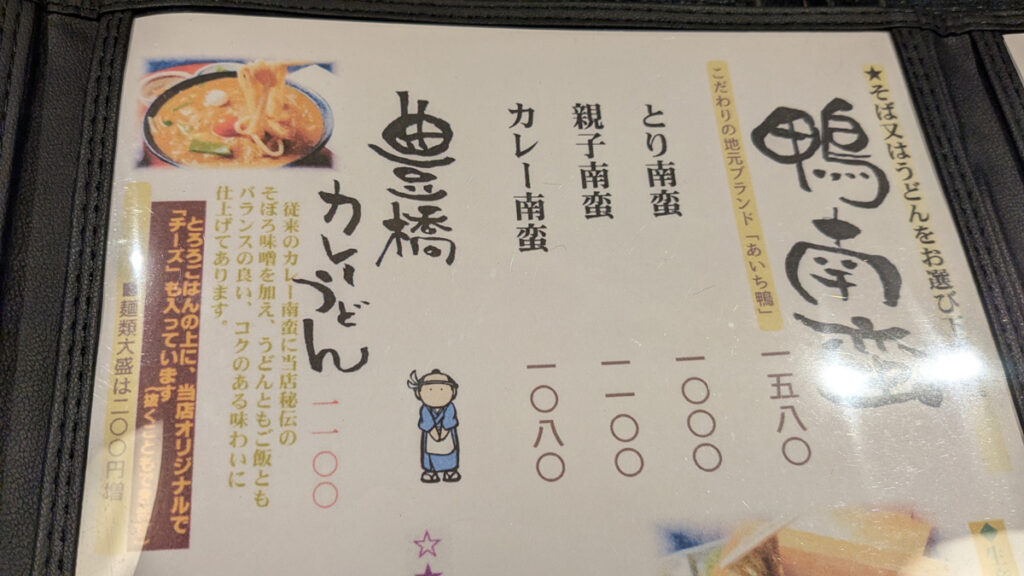 ★そば又はうどんをお選び下
鴨南蛮
一五八〇
こだわりの地元ブランド「あいち鴨」
とり南蛮
一〇〇〇
親子南蛮
一一〇〇
カレー南蛮
一〇八〇
豊橋
カレーうどん
一一〇〇
従来のカレー南蛮に当店秘伝の
そぼろ味噌を加え、うどんともご飯とも
バランスの良い、コクのある味わいに
仕上げてあります。
とろろごはんの上に、当店オリジナルで
「チーズ」も入っています
麺類大盛は二〇〇円増